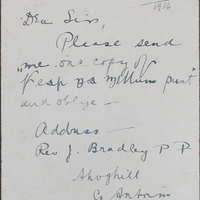 1916
Dear Sir,
Please send
me one copy of
"
and oblige —
Address —
Rev J. Bradley P P
Ahoghill
Co Antrim